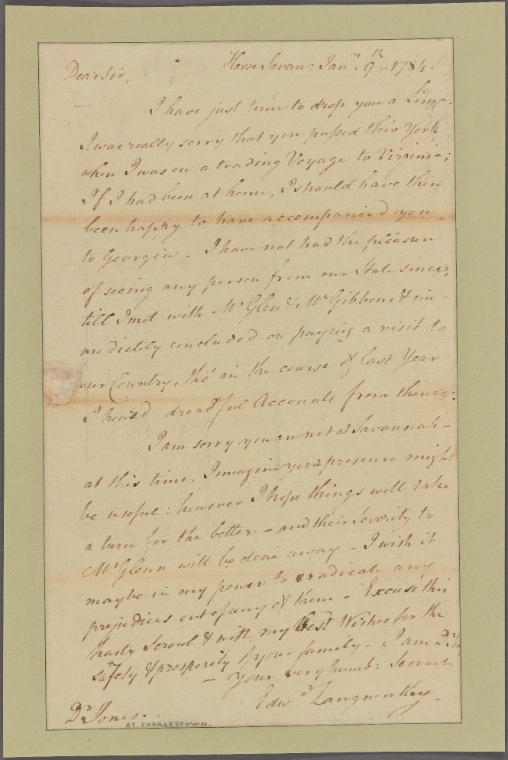 Dear Sir, Horse Savan: Jany. 9th. 1784.
I have just time to drop you a Line.
I was really sorry that you passed thro York
when I was on a trading Voyage to Virginia;
If I had been at home, I should have then
been happy to have accompanied you
to Georgia. I have not had the pleasure
of seeing any person from our State since,
till I met with Mr Glen & Mr Gibbons & im-
mediately concluded on paying a visit to
our Country, tho' in the course of last Year
I heard dreadful Accounts from thence.
I am sorry you are not at Savannah -
at this time. I imagine your presence might
be useful: however I hope things will take
a turn for the better - and their Severity to
Mr Glenn will be done away - I wish it
maybe in my power to eradicate any
prejudices out of any of them - Excuse this
hasty Scrawl & with my best Wishes for the
safety & prosperity of your family - I am Dr Sir
- Your very humb: Servant
Edwd Langworthy.
Dr Jones.
AT CHARLESTOWN.